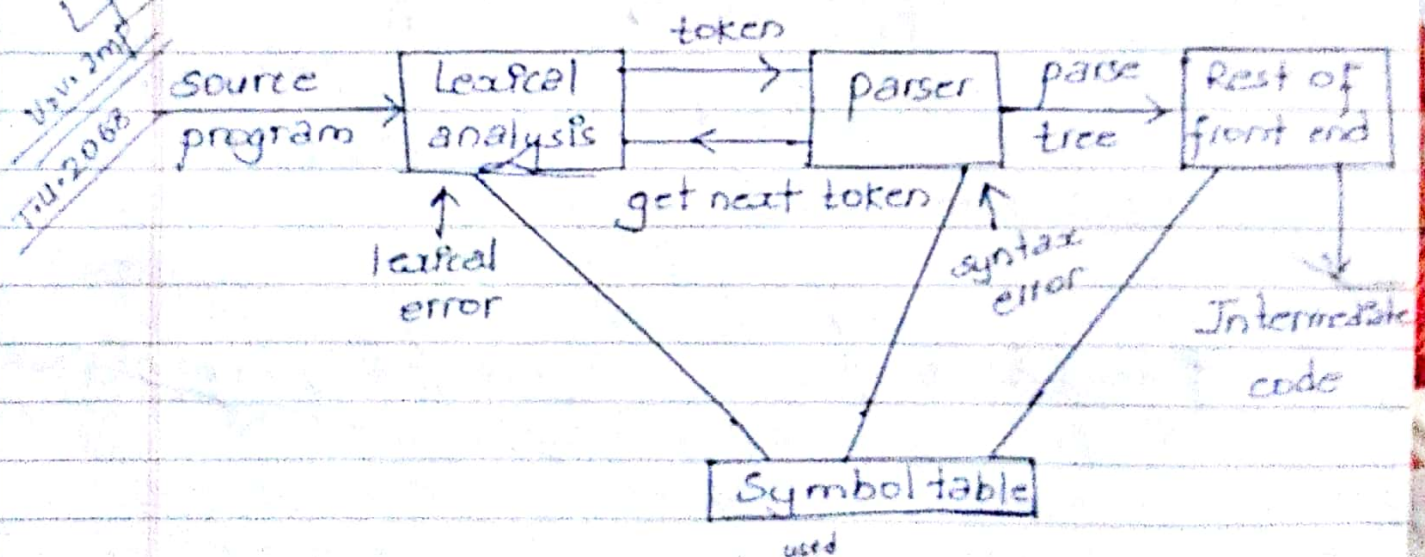 V.V. Imp
T.U. 2068
source
program
Lexical
analysis
token
get next token
parser
parse
tree
Rest of
front end
lexical
error
syntax
error
Intermediate
code
Symbol table
used